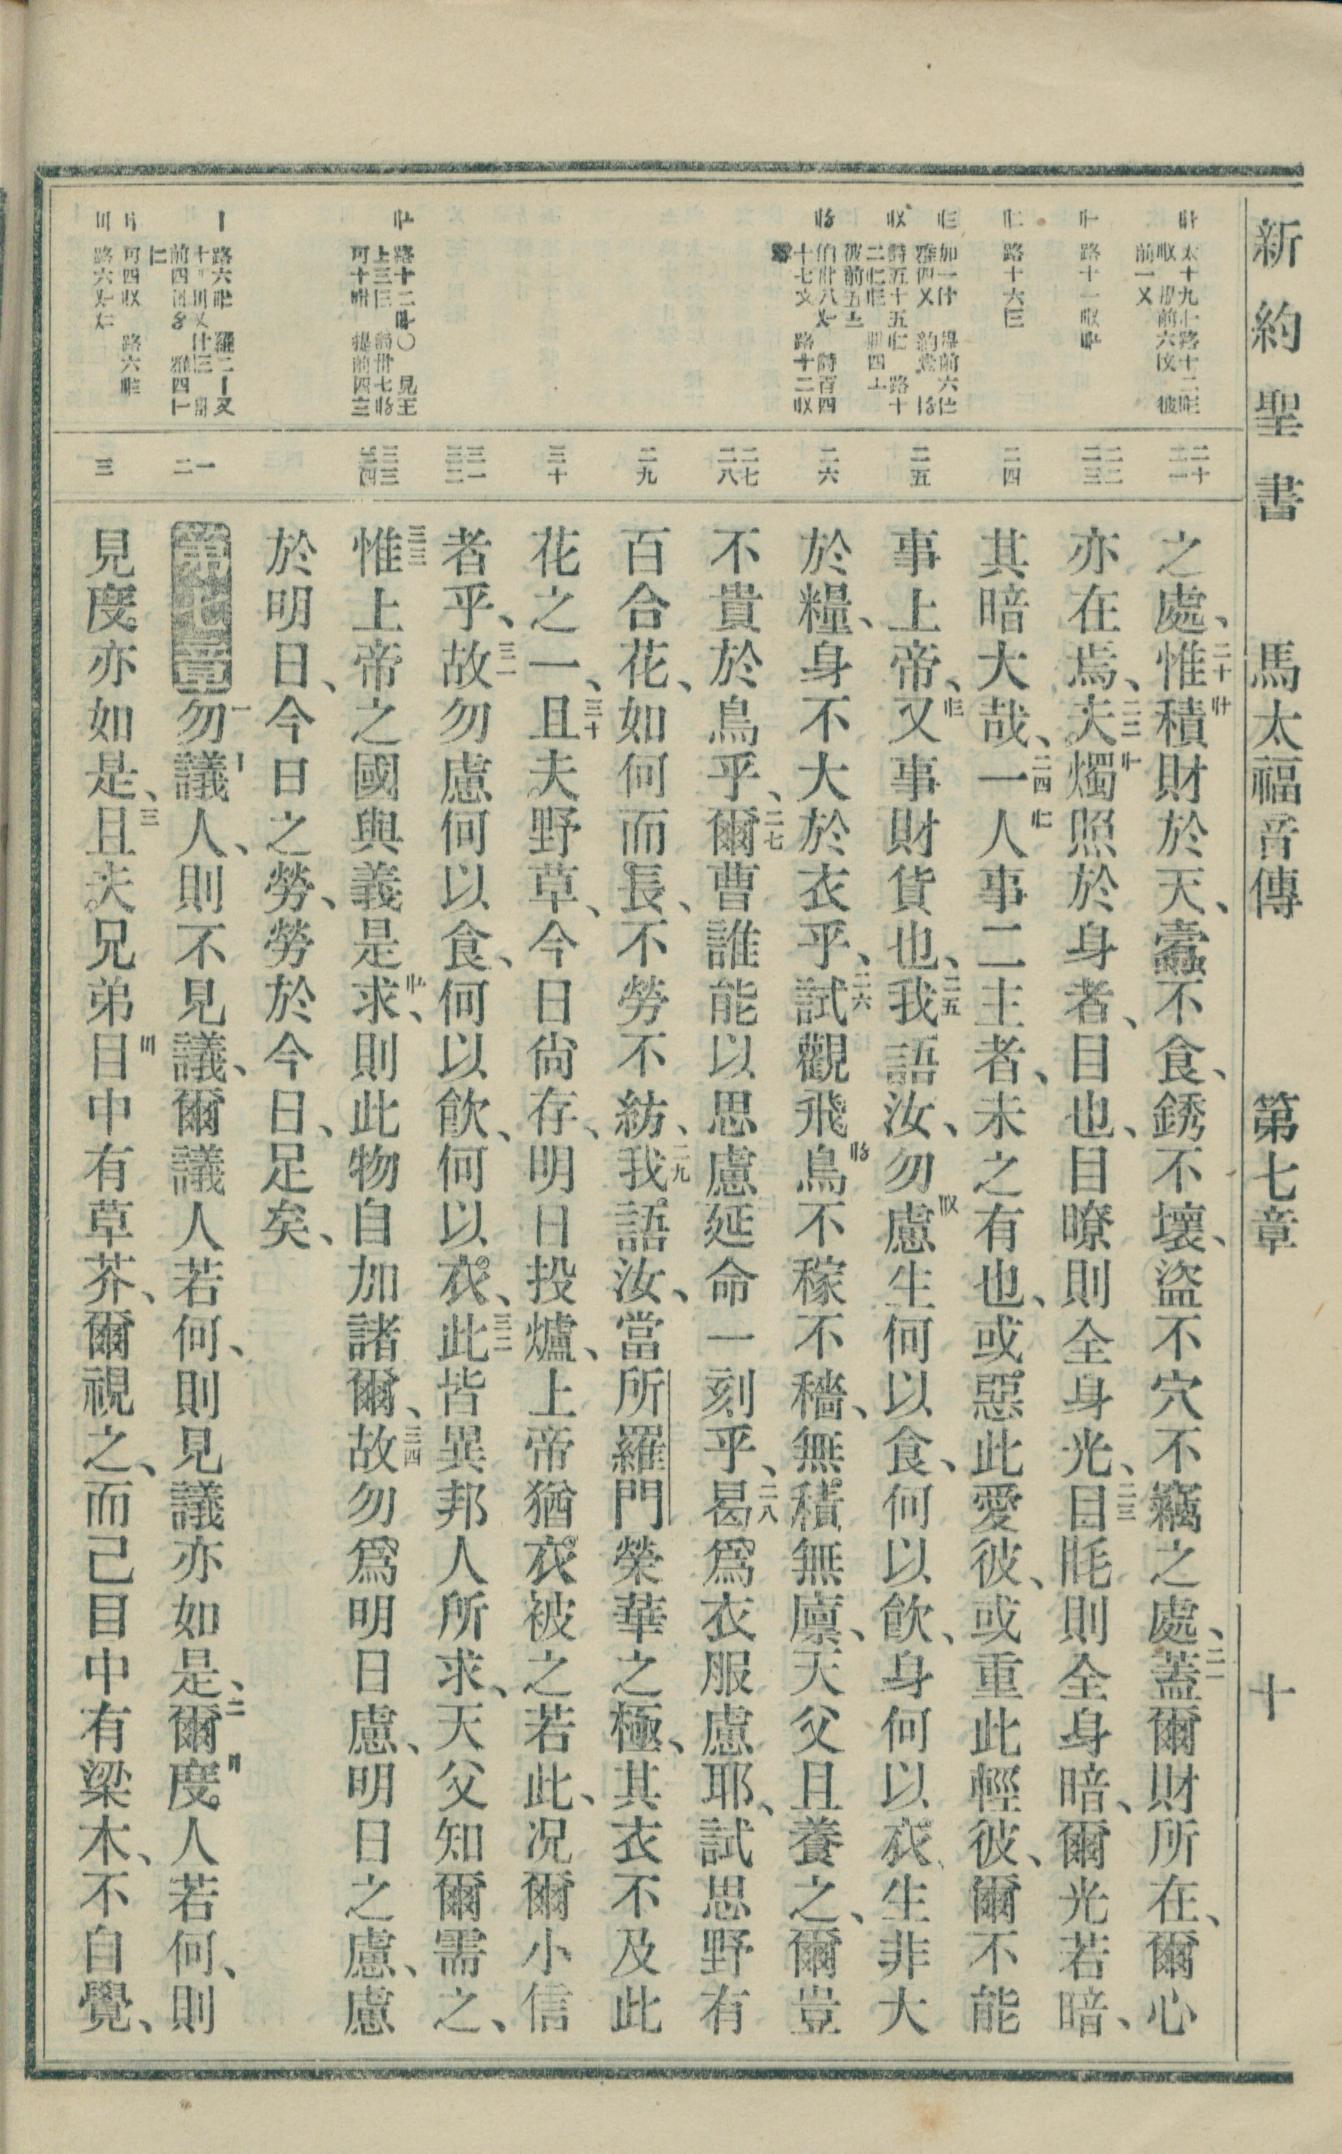 新約聖書 馬太福音傳 第七章 十
之處、惟積財於天、蠹不食、銹不壞、盜不穴不竊之處、蓋爾財所在、爾心
亦在焉、夫燭照於身者、目也、目瞭則全身光、目眊則全身暗、爾光若暗、
其暗大哉、一人事二主者、未之有也、或惡此愛彼、或重此輕彼、爾不能
事上帝、又事財貨也、我語汝、勿慮生何以食、何以飲、身何以衣、生非大
於糧、身不大於衣乎、試觀飛鳥不稼不穡、無積無廩、天父且養之、爾豈
不貴於鳥乎、爾曹誰能以思慮延命一刻乎、曷爲衣服慮耶、試思野有
百合花、如何而長、不勞不紡、我語汝、當所羅門榮華之極、其衣不及此
花之一、且夫野草、今日尚存、明日投爐、上帝猶衣被之若此、况爾小信
者乎、故勿慮何以食、何以飲、何以衣、此皆異邦人所求、天父知爾需之、
惟上帝之國與義是求、則此物自加諸爾、故勿爲明日慮、明日之慮、慮
於明日、今日之勞、勞於今日、足矣、
第七章 勿議人、則不見議、爾議人若何、則見議亦如是、爾度人若何、則
見度亦如是、且夫兄弟目中有草芥、爾視之、而己目中有梁木、不自覺、
二十
二一
二二
二三
二四
二五
二六
二七
二八
二九
三十
三一
三二
三三
三四
一
二
三